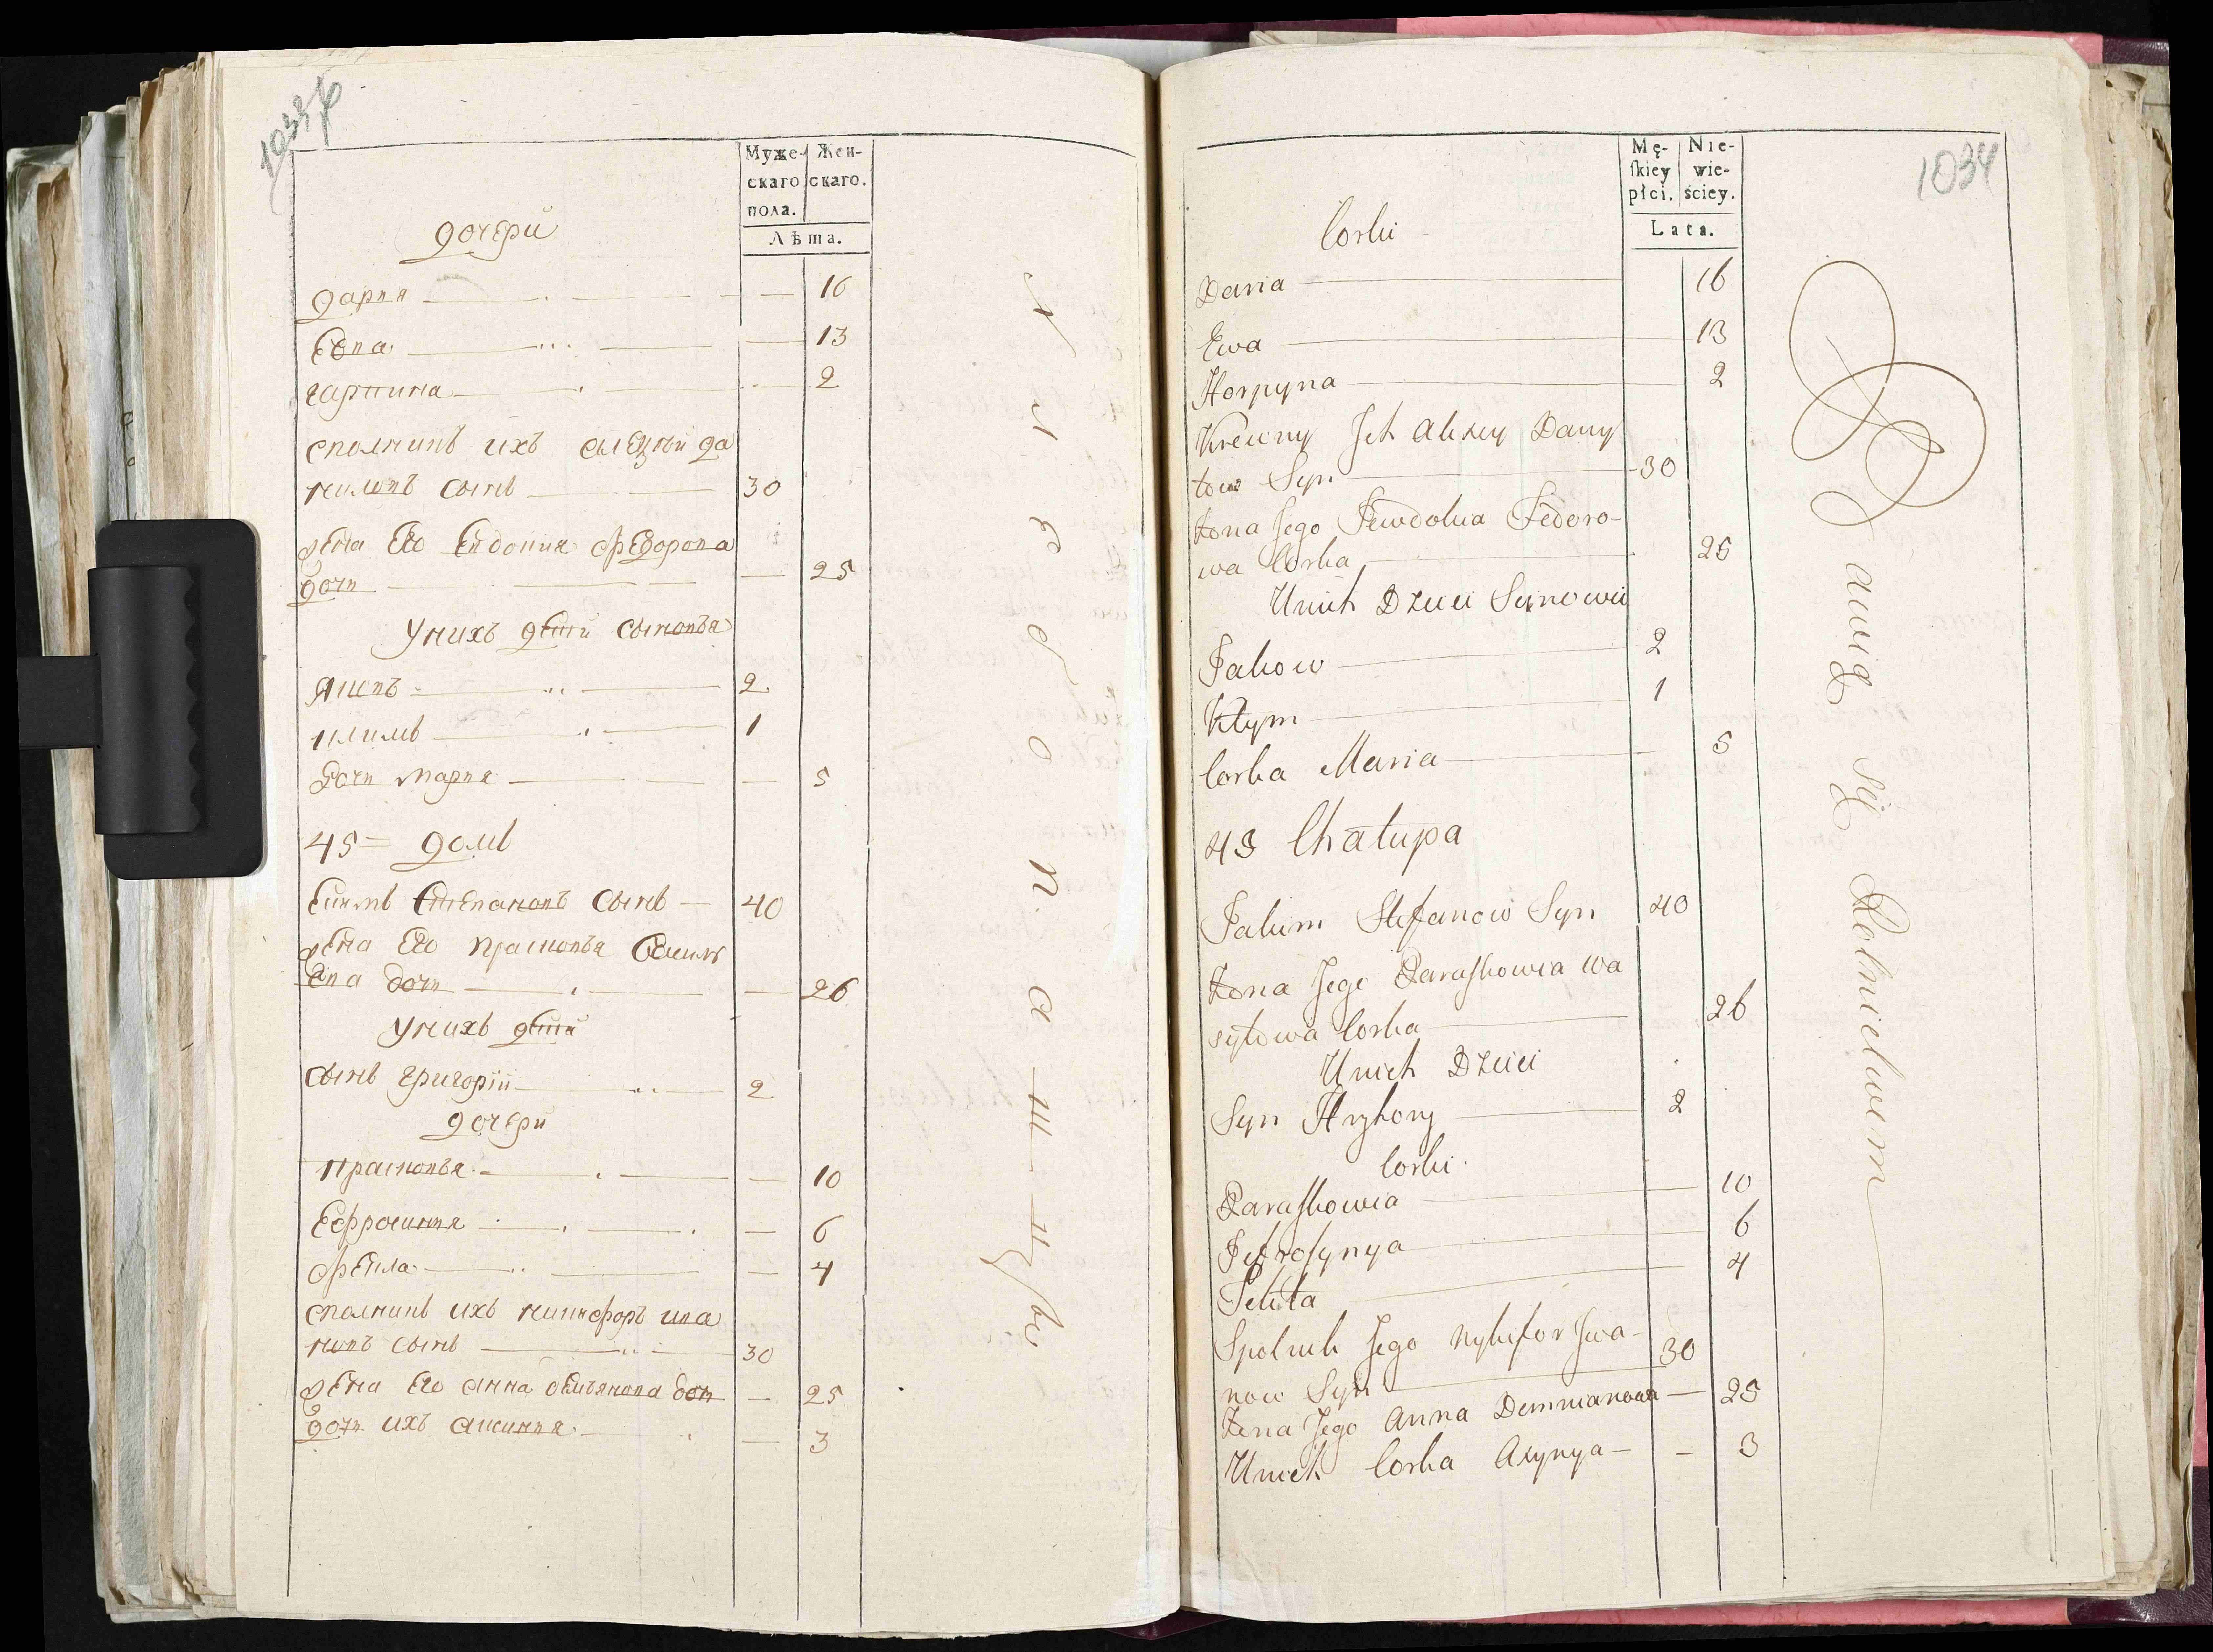 1033 об
Муже-скаго пола. Жен-скаго.
Лѣта.
дочери
дария 16
Евва 13
гарпина 2
сполникъ ихъ алеѯѣй да
ниловъ сынъ 30
жена Его Евдокия Федорова
дочь 25
У нихъ дѣти сыновья
яковъ 2
климъ 1
дочь мария 5
45 домъ
Екимъ Степановъ сынъ 40
жена Его Прасковья Василь
Ева дочь 26
У нихъ дѣти
сынъ григорій 2
дочери
Прасковья 10
Ефросиния 6
Фекла 4
сполникъ ихъ никифоръ ива
новъ сынъ 30
жена Его анна демьянова дочь 25
дочь ихъ аксиния 3
1034
Mę-skiey płci. Nie-wie-ściey.
Lata.
Corki
Daria 16
Ewa 13
Horpyna 2
Krewny Jch Alexey Dany
łow Syn 30
żona Jego Jewdokia Fedoro-
wa Corka 25
Unich Dzieci Synowie
Jakow 2
Kłym 1
Corka Maria 5
45 Chałupa
Jakim Stefanow Syn 40
żona Jego Paraskowia Wa
syłowa Corka 26
Unich Dzieci
Syn Hryhory 2
Corki
Paraskowia 10
Jefrosynya 6
Fekła 4
Spolnik Jego Nykifor Jwa-
now Syn 30
żona Jego Anna Demmianowa 25
Unich Corka Axynya 3
Bawią się Rolnictwem